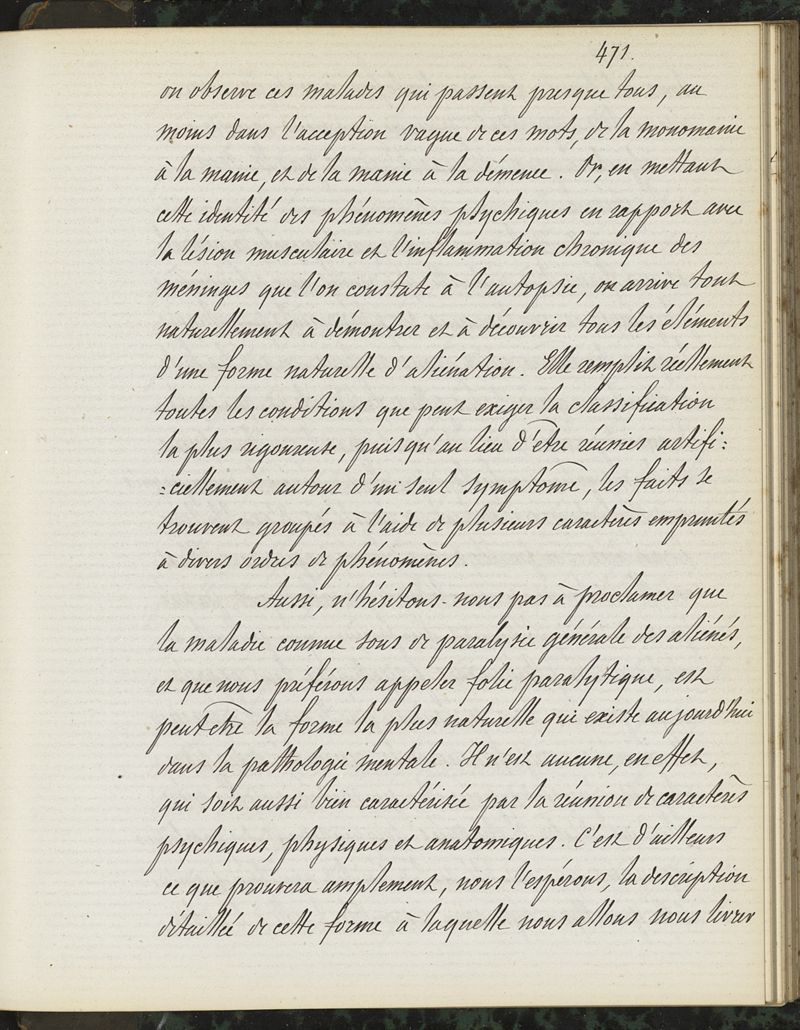 471.
on observe ces malades qui passent presque tous, au
moins dans l'acception vague de ces mots, de la monomanie
à la manie, et de la manie à la démence. Or, en mettant
cette identité des phénomènes psychiques en rapport avec
la lésion musculaire et l'inflammation chronique des
méninges que l'on constate à l'autopsie, on arrive tout
naturellement à démontrer et à découvrir tous les éléments
d'une forme naturelle d'aliénation. Elle remplit réellement
toutes les conditions que peut exiger la classification
la plus rigoureuse, puisqu'au lieu d'être réunies artifi:
:ciellement autour d'un seul symptôme, les faits se
trouvent groupés à l'aide de plusieurs caractères empruntés
à divers ordres de phénomènes.
Aussi, n'hésitons-nous pas à proclamer que
la maladie connue sous de paralysie générale des aliénés,
et que nous préférons appeler folie paralytique, est
peut être la forme la plus naturelle qui existe aujourd'hui
dans la pathologie mentale. Il n'est aucune, en effet,
qui soit aussi bien caractérisée par la réunion de caractères
psychiques, physiques et anatomiques. C'est d'ailleurs
ce que prouvera amplement, nous l'espérons, la description
détaillée de cette forme à laquelle nous allons nous livrer